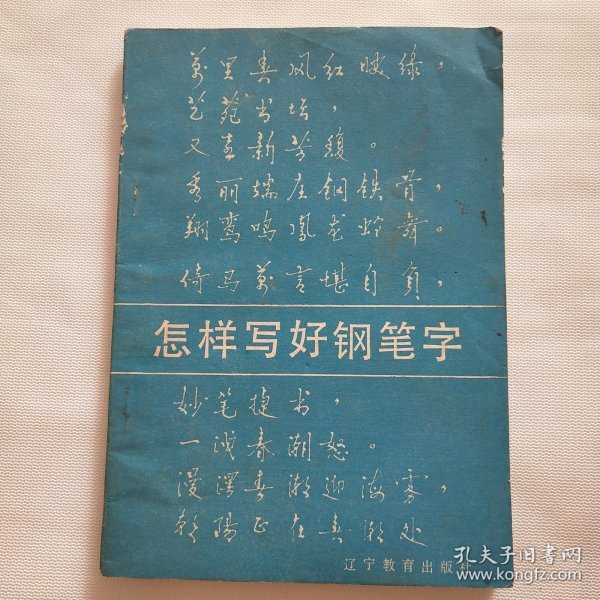 万里春风红映绿，
艺苑书坛，
又喜新芳馥。
秀丽端庄钢铁骨，
翔鸾鸣凤龙蛇舞。
倚马万言堪自负，
怎样写好钢笔字
妙笔捷书，
一溅春潮怒。
漫溯春潮迎海雾，
朝阳正在春潮处
辽宁教育出版社
孔夫子旧书网
www.kongfz.com